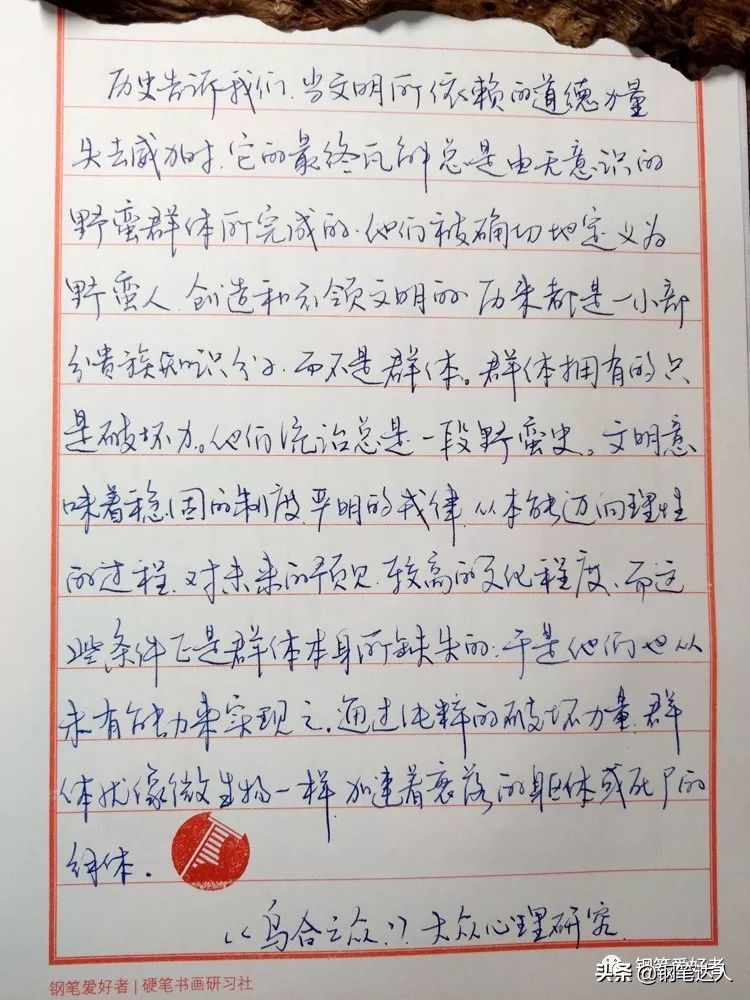 历史告诉我们,当文明所依赖的道德力量
失去威力时,它的最终瓦解总是由无意识的
野蛮群体所完成的.他们被确切地定义为
野蛮人.创造和引领文明的历来都是一小部
分贵族知识分子.而不是群体。群体拥有的只
是破坏力。他们统治总是一段野蛮史。文明意
味着稳固的制度,严明的戒律,从本能迈向理性
的过程.对未来的预见,较高的文化程度,而这
些条件正是群体本身所缺失的;于是他们也从
未有能力来实现之。通过纯粹的破坏力量,群
体就像微生物一样,加速着衰落的躯体或死尸的
解体.
《乌合之众》大众心理研究
钢笔爱好者 | 硬笔书画研习社
钢笔爱好者
头条 @钢笔达人